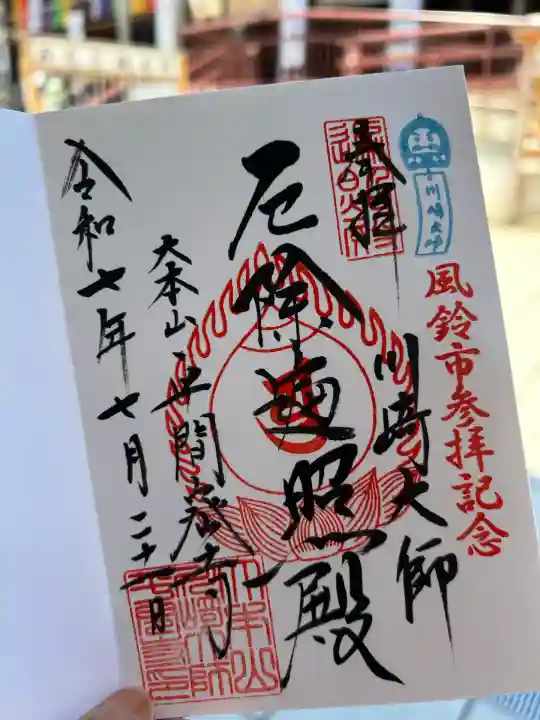 川崎大師
風鈴市参拝記念
奉拝
川崎大師
厄除遍照殿
大本山平間寺
令和七年七月二十一日